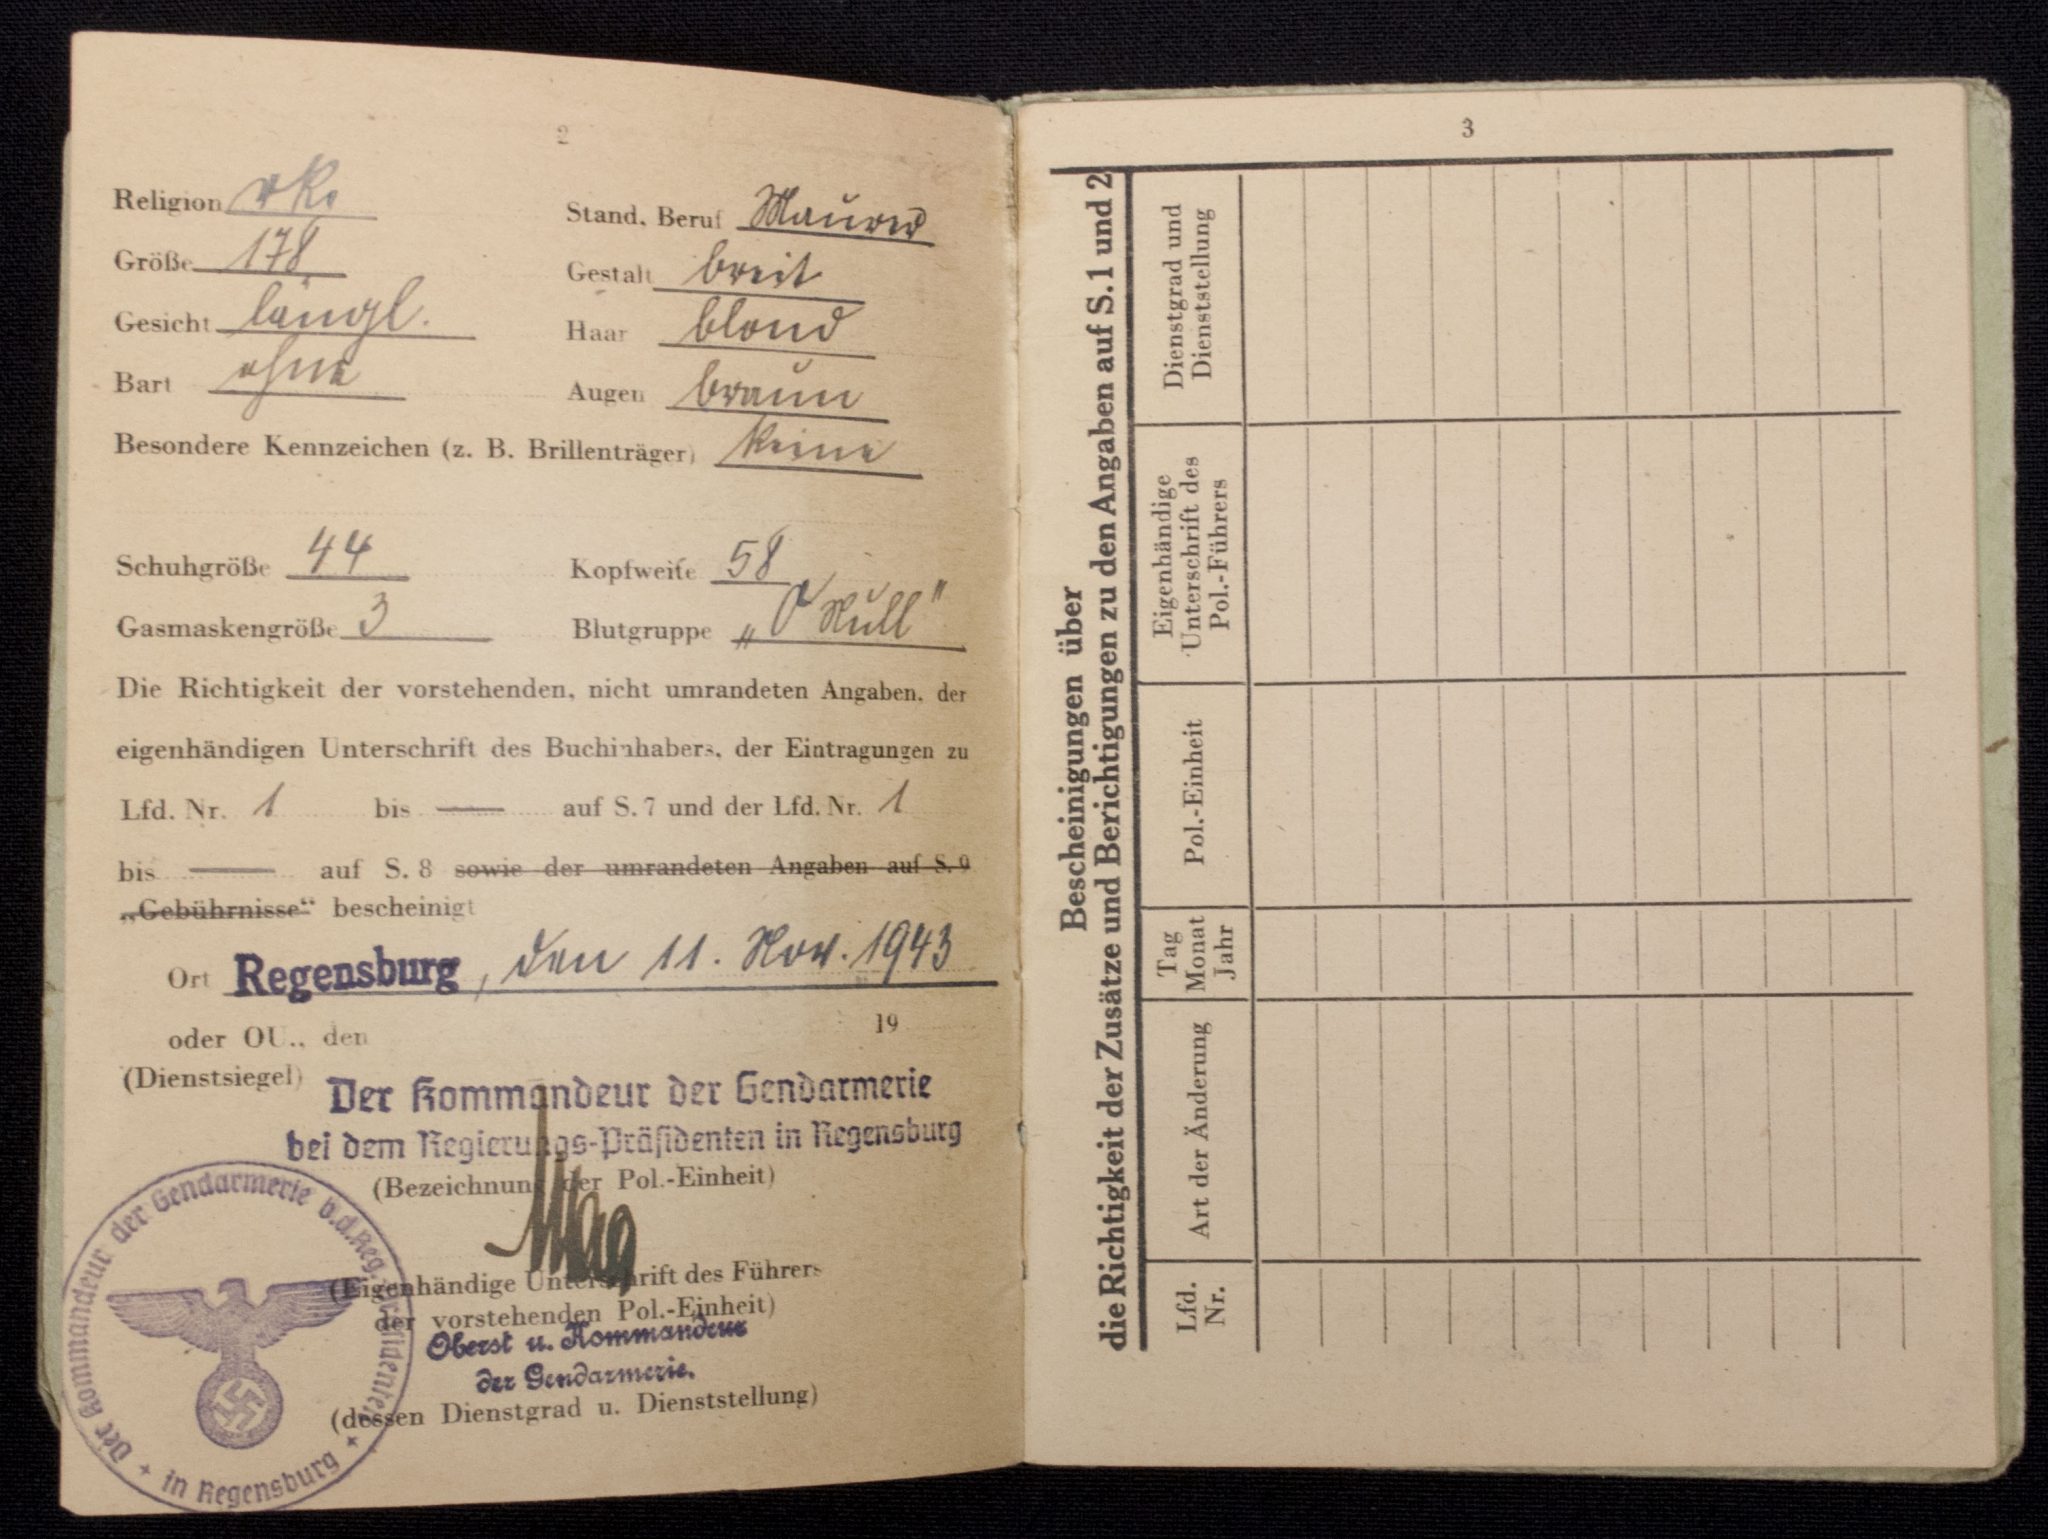 2
Religion rk.
Stand, Beruf Maurer
Größe 178
Gestalt breit
Gesicht längl.
Haar blond
Bart ohne
Augen braun
Besondere Kennzeichen (z. B. Brillenträger) keine
Schuhgröße 44
Kopfweite 58
Gasmaskengröße 3
Blutgruppe „O Null"
Die Richtigkeit der vorstehenden, nicht umrandeten Angaben, der
eigenhändigen Unterschrift des Buchinhabers, der Eintragungen zu
Lfd. Nr. 1 bis — auf S. 7 und der Lfd. Nr. 1
bis — auf S. 8 sowie der umrandeten Angaben auf S. 9
„Gebührnisse“ bescheinigt
Ort Regensburg, den 11. Nov. 1943
oder OU., den 19
(Dienstsiegel)
Der Kommandeur der Gendarmerie
bei dem Regierungs-Präsidenten in Regensburg
(Bezeichnung der Pol.-Einheit)
(Eigenhändige Unterschrift des Führers
der vorstehenden Pol.-Einheit)
Oberst u. Kommandeur
der Gendarmerie.
(dessen Dienstgrad u. Dienststellung)
Der Kommandeur der Gendarmerie b.d. Reg. Präsidenten
in Regensburg
3
Bescheinigungen über
die Richtigkeit der Zusätze und Berichtigungen zu den Angaben auf S. 1 und 2
Lfd.
Nr.
Art der Änderung
Tag
Monat
Jahr
Pol.-Einheit
Eigenhändige
Unterschrift des
Pol.-Führers
Dienstgrad und
Dienststellung